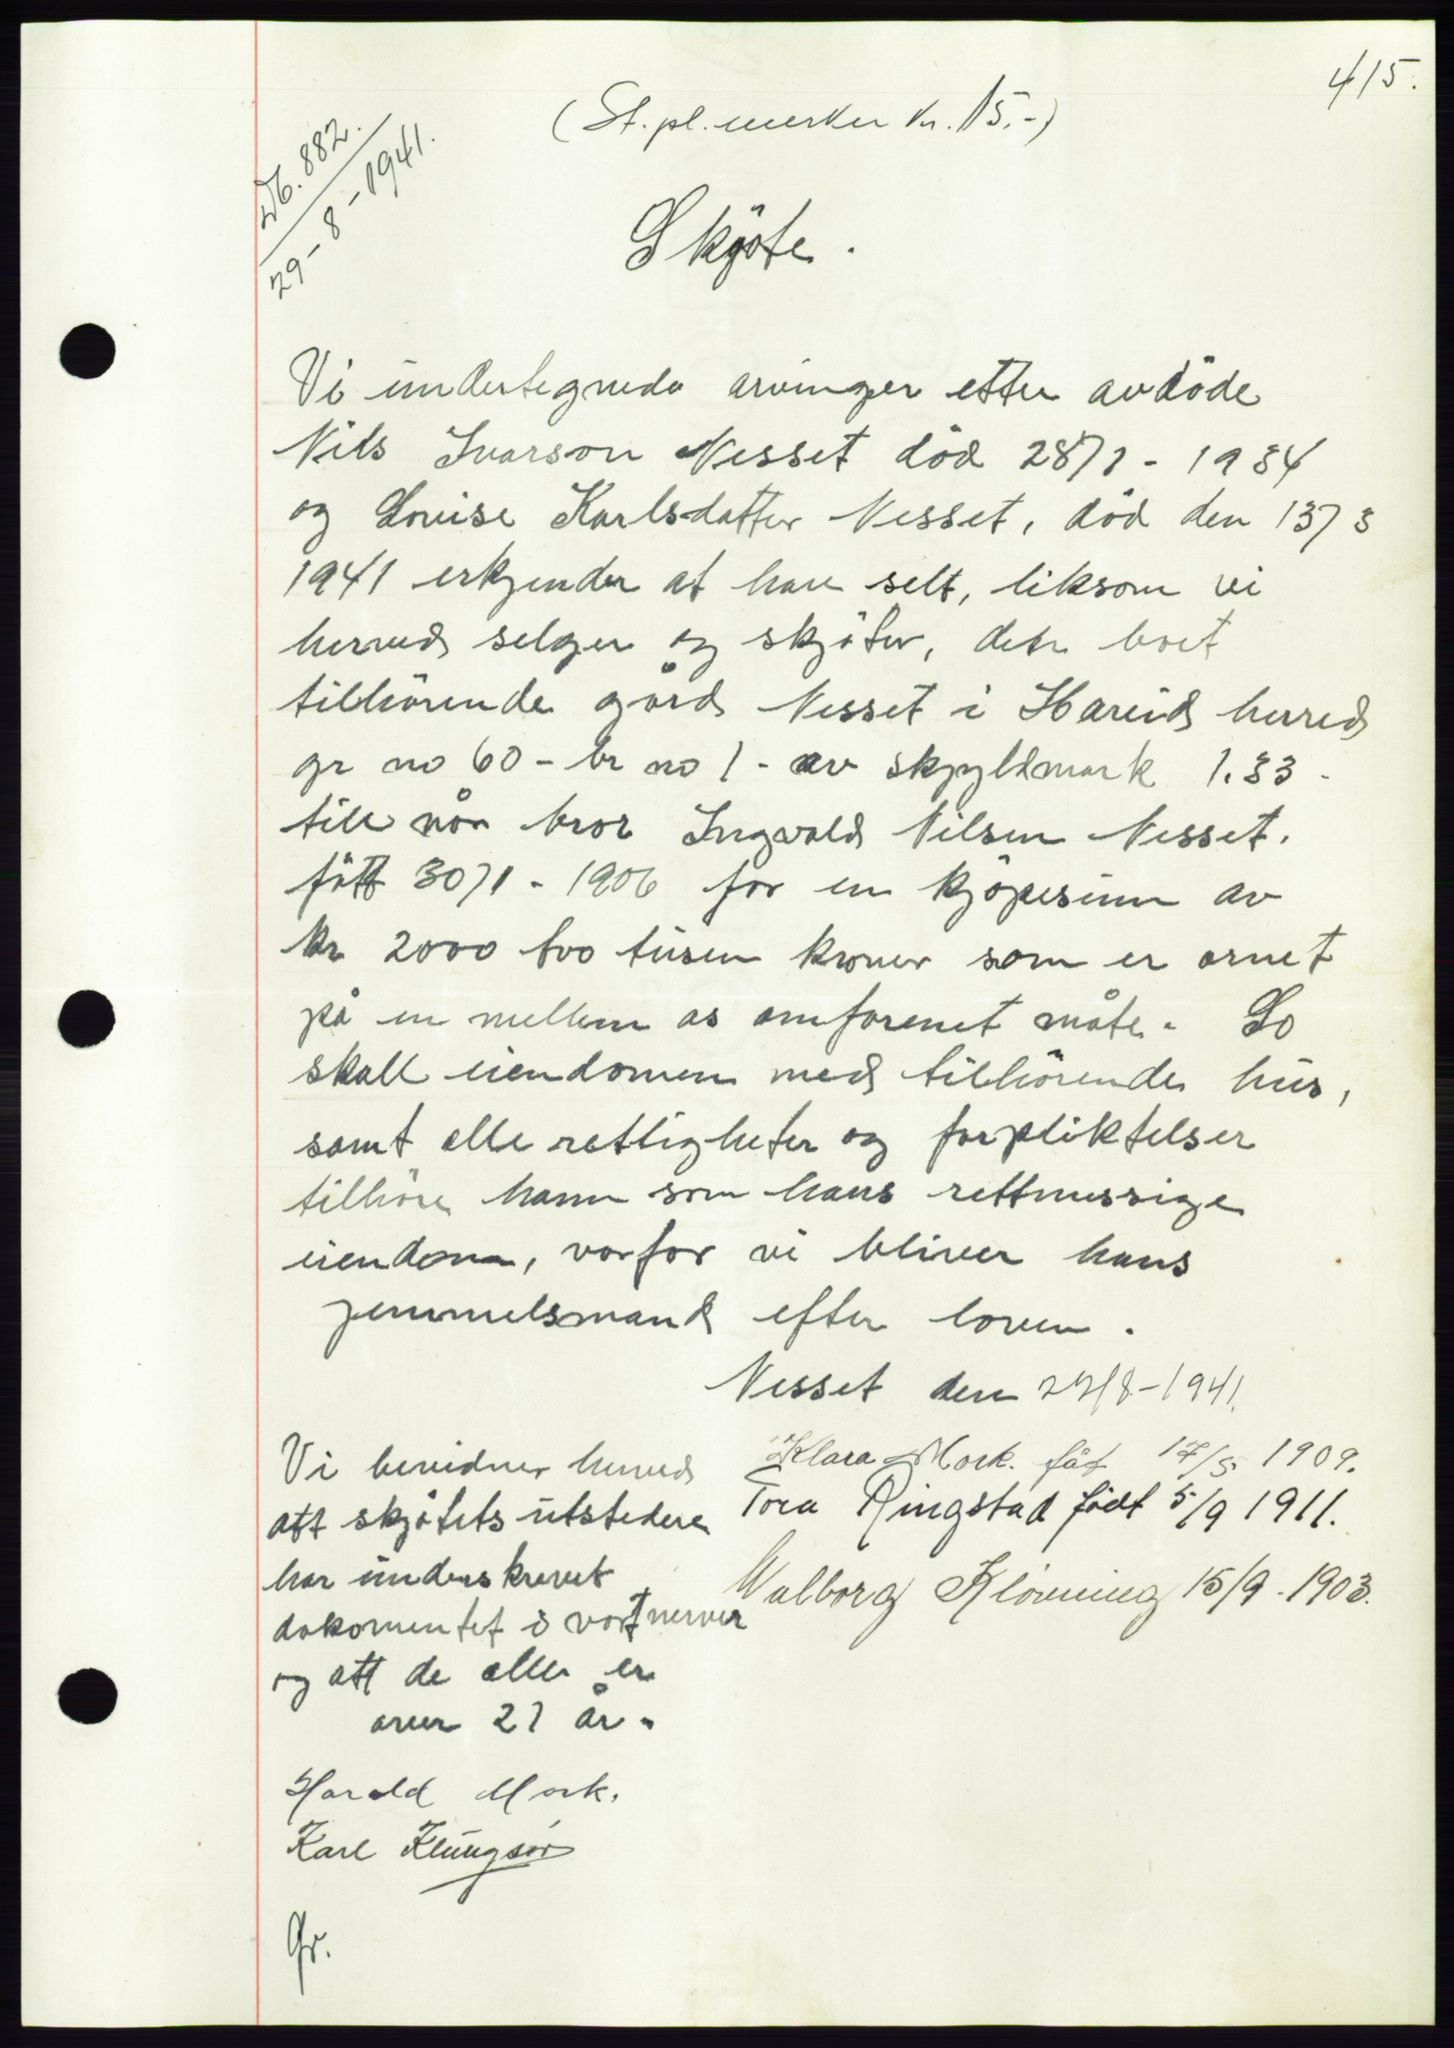 415.
(St.pl.merker kr. 15.-)
Db. 882.
29-8-1941.
Skjöte.
Vi undertegnede arvinger etter avdöde
Nils Ivarson Nesset död 28/1 - 1934
og Lovise Karlsdatter Nesset, död den 13/3
1941 erkjender at have selt, liksom vi
herved selger og skjöter, den boet
tilhörende gård Nesset i Hareid herred
gr no 60 - br no 1 - av skyldmark 1.33 -
till vår bror Ingvald Nilsen Nesset.
fött 30/1 - 1906 for en kjöpesum av
kr 2000 tvo tusen kroner som er ornet
på en mellem os omforenet måte. So
skall eiendomen med tilhörende hus,
samt alle rettigheter og forpliktelser
tilhöre ham som hans rettmessige
eiendom, vorfor vi bliver hans
jemmelsmand efter loven.
Nesset den 27/8-1941.
Klara Mork. föt 17/5 1909.
Tora Ringstad födt 5/9 1911.
Walborg Klovning 15/9 - 1903.
Vi bevidner herved
att skjötets utstedere
har underskrevet
dokomentet i vort nerver
og att de alle er
over 21 år.
Harald Mork.
Karl Klungsör
Gr.